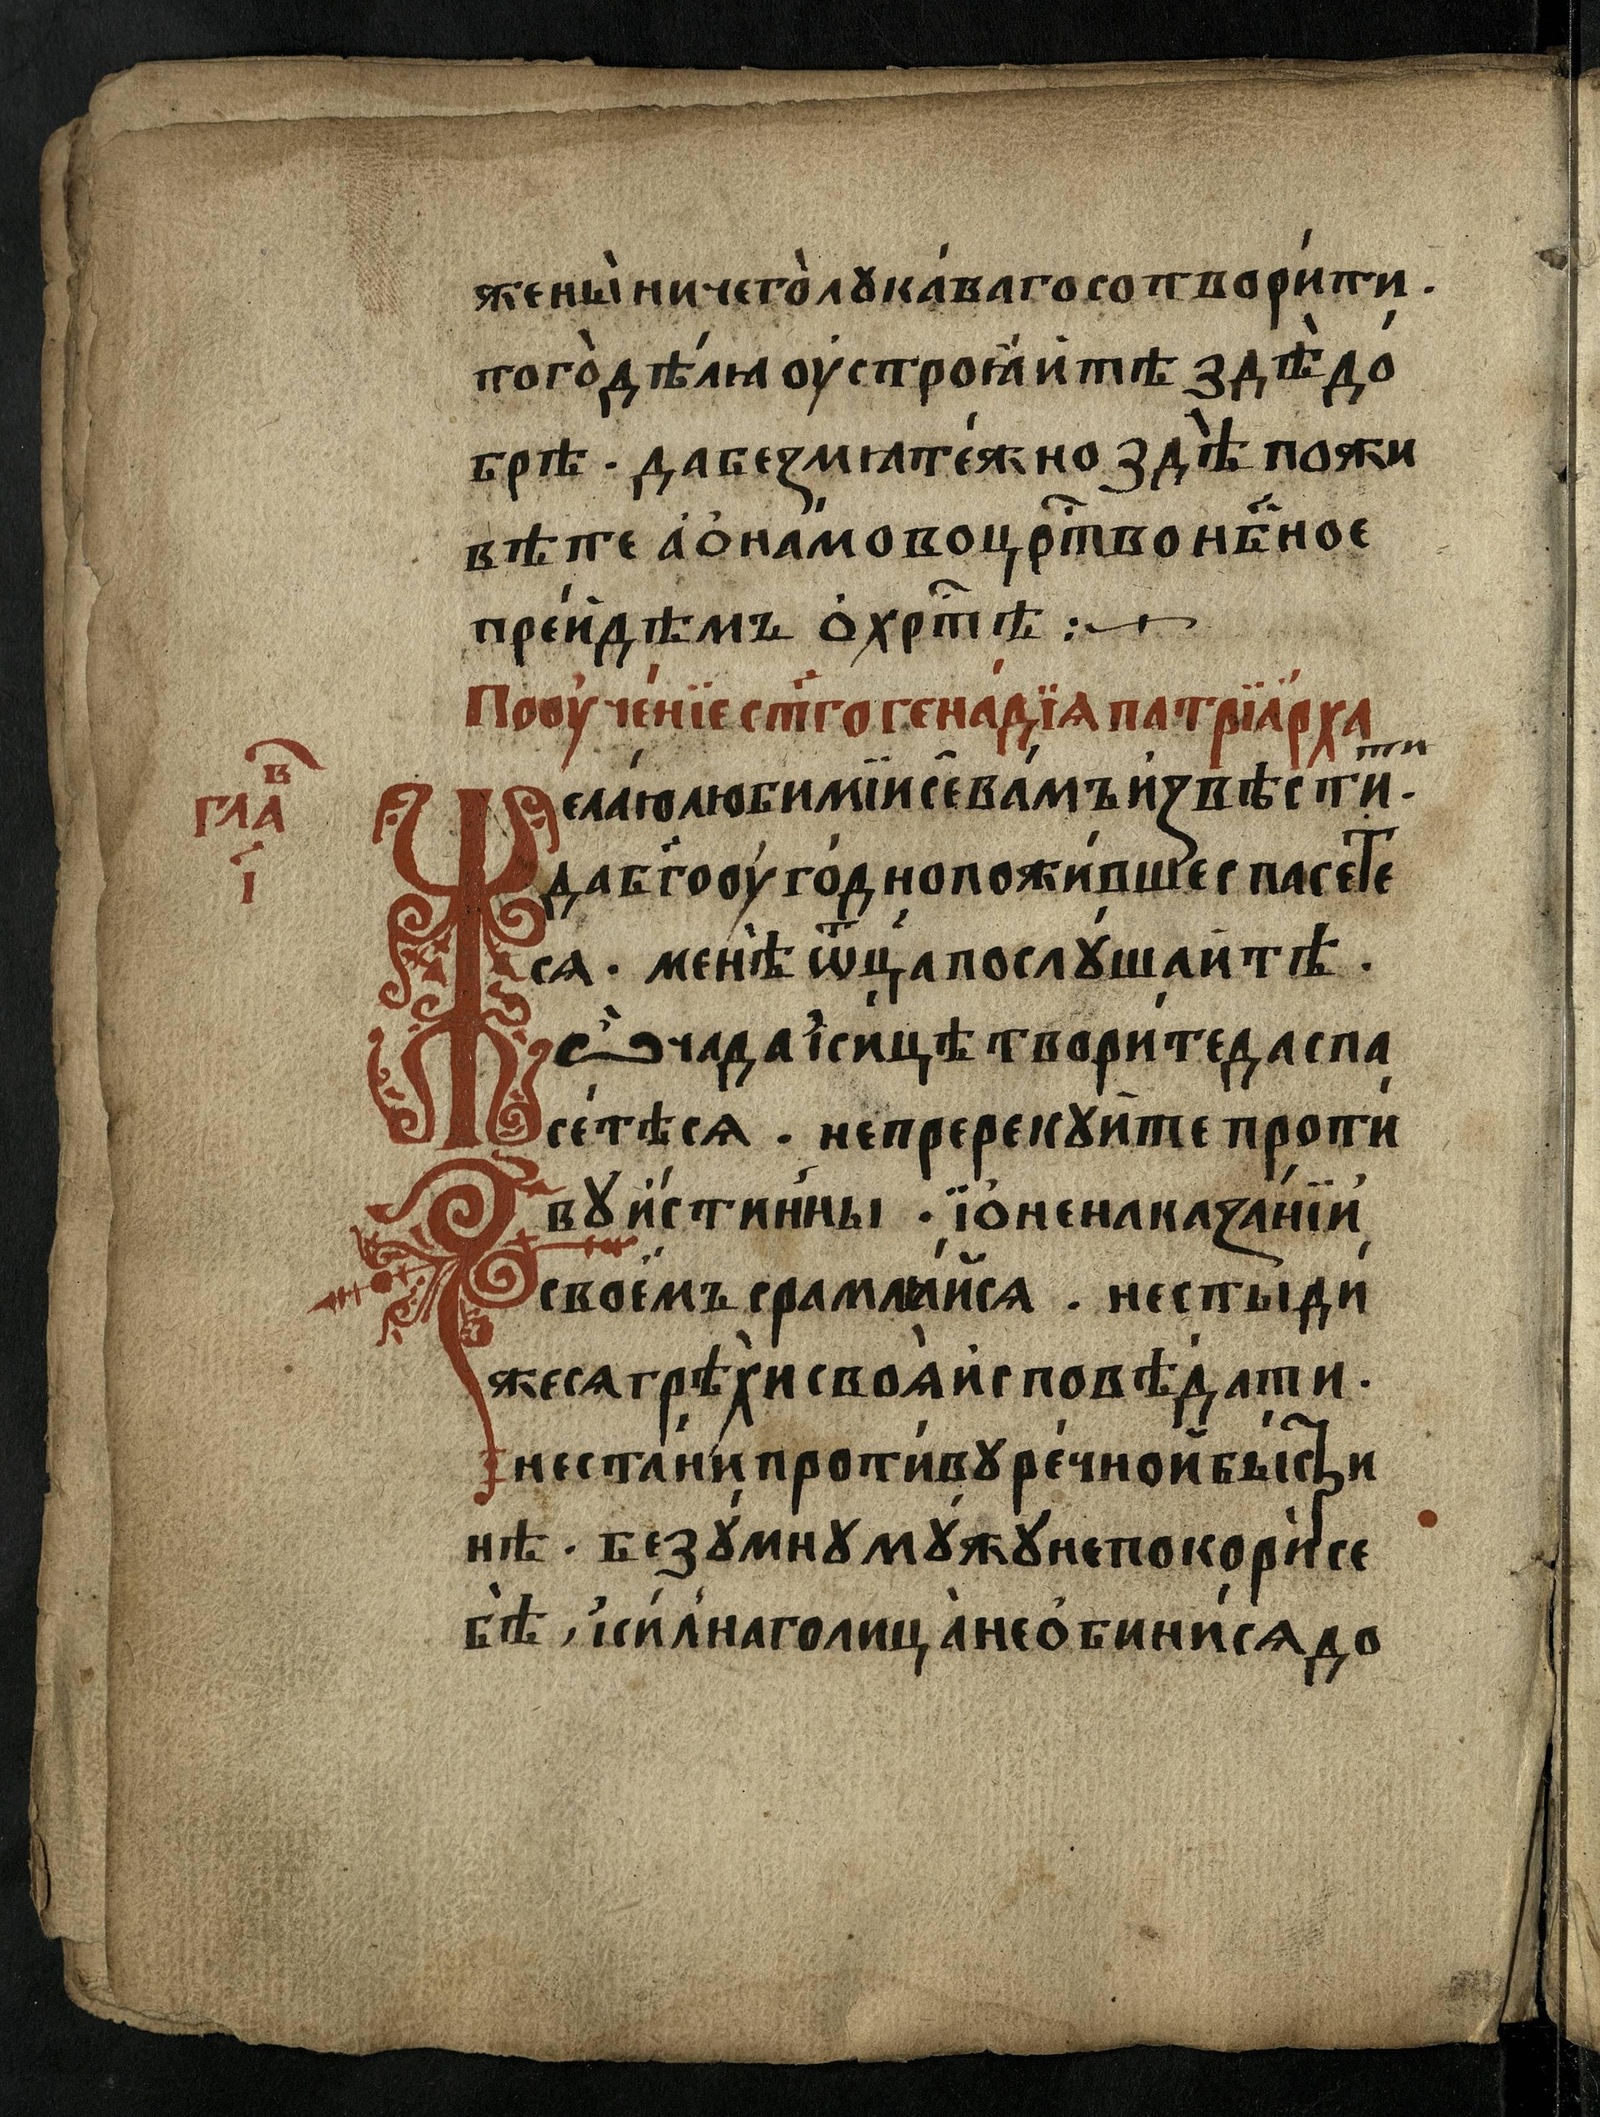 жены̀ ничего̀ лꙋка́ваго сотвори́ти .
того̀ дѣ́ля оу҆строѧ́йтѣ здѣ̀ до́
брѣ . да безмяте́жно здѣ̀ пожи
вѣте а҆ ѻ҆на́мо во црⷭ҇тво нб҃ное
пре́йдѣмъ ѻ҆ хрⷭ҇тѣ :~
Пооу҆че́нїе ст҃го гена́дїѧ патрїа́рха
глаⷡ҇
і҃
Жела́ю любимїи сѐ ва́мъ и҆звѣсти́ти .
да бг҃ооу҆го́дно пожи́вше спасете
сѧ . менѐ ѿц҃а послꙋ́шайтѣ .
Ѽ ча́да і҆ си́цѣ твори́те да спа
се́тѣсѧ . не пререкꙋйте проти́
вꙋ и҆́стинны . ї ѻ҆ ненаказа́нїи
свое́мъ срамлѧ́йсѧ . не стыди́
жесѧ грѣхѝ своѧ̀ и҆сповѣ́дати .
І не ста́ни проти́вꙋ ре́чной быⷭ҇три
нѣ . безꙋ́мнꙋ мꙋ́жꙋ не покори́ се
бѐ , і҆ си́лнаго лица̀ не ѻ҆бини́сѧ до